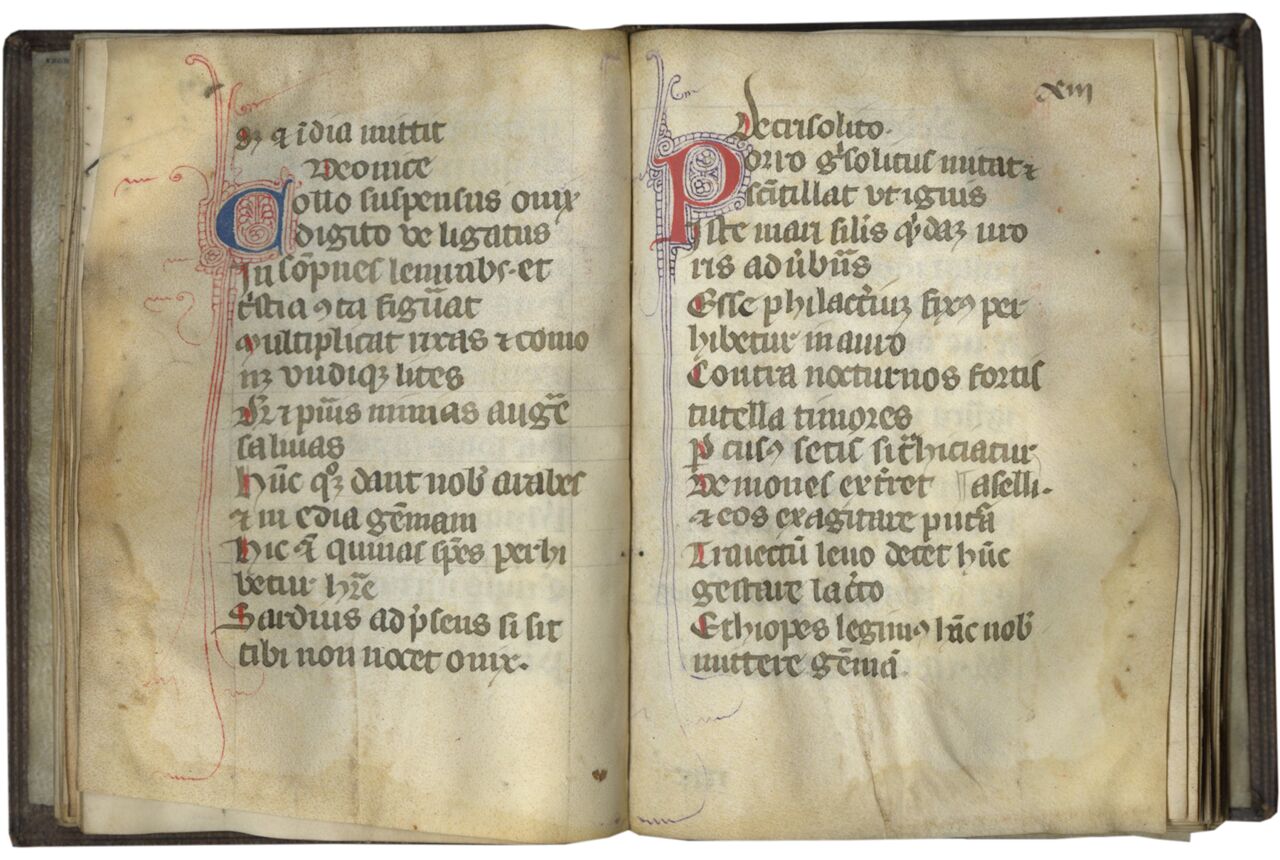 ꝫ ⁊ īdia mittit
De onice
Collo suspensus onix
digito ve ligatus
In sōpnes lemurabꝫ et
tͥstia ꝯta figūat
Multiplicat rixas ⁊ como
nꝫ vndiqꝫ lites
Fr̄ ⁊ pīus nimias augē
saliuas
Hūc qͦꝫ dant nob̛ arabes
⁊ in edia gēmam
Hic ā quinas sp̄es perhi
betur hr̄e
Sardius ad p̄sens si sit
tibi non nocet onix.
xiii
De crisolito.
Porro gͥsolitus mitat ⁊
scītillat vt ignis
Iste mari silis qͥdaꝫ uro
ris aduībūs
Esse philactiūꝫ fixꝰ per
hibetur in auro
Contra nocturnos fortis
tutella timores
ꝑ cusꝰ setis si tͥhiciatur
Demones exͭret aselli.
⁊ eos exagitare putā
Traiectū leuo decet hūc
gestare lac̄to
Ethiopes legimꝰ hūc nob̛
mittere gēmā.